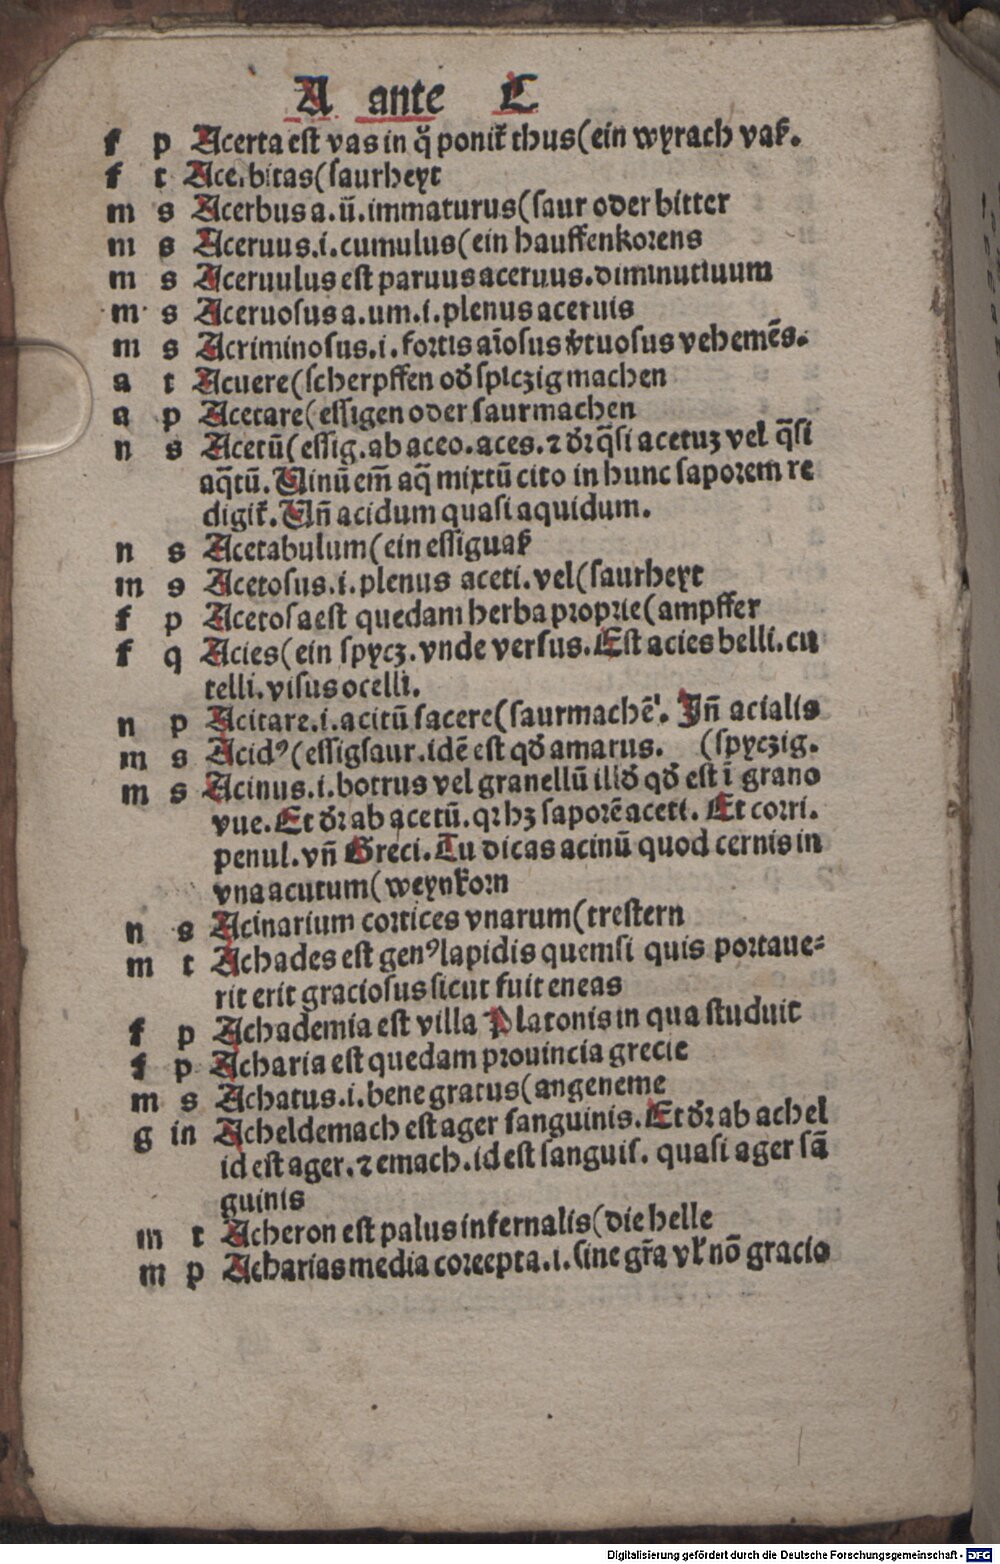 A ante C
f p Acerta est vas in q̃ ponit᷑ thus(ein wyrach vaß.
f t Acerbitas(saurheyt
m s Acerbus a. ū. immaturus(saur oder bitter
m s Aceruus.i.cumulus(ein hauffenkorens
m s Aceruulus est paruus aceruus.diminutiuum
m s Aceruosus a.um.i.plenus aceruis
m s Acriminosus.i.fortis aīosus v̓tuosus vehemēs.
a t Acuere(scherpffen oď spiczig machen
a p Acetare(essigen oder saurmachen
n s Acetū(essig.ab aceo.aces.⁊ dr̄ q̄si acetuꝫ vel q̄si
aq̄tū. Uinū em̄ aq̄ mixtū cito in hunc saporem re
digit᷑. Un̄ acidum quasi aquidum.
n s Acetabulum(ein essiguaß
m s Acetosus.i.plenus aceti.vel(saurheyt
f p Acetosa est quedam herba proprie(ampffer
f q Acies(ein spycz.vnde versus.Est acies belli.cu
telli.visus ocelli.
n p Acitare.i.acitū facere(saurmachē. Jn̄ acialis
m s Acidꝰ(essigsaur.idē est qď amarus. (spyczig.
m s Acinus.i.botrus vel granellū illď qď est ī grano
vue.Et dr̄ ab acetū.qr hꝫ saporē aceti. Et corri.
penul.vn̄ Greci.Tu dicas acinū quod cernis in
vna acutum(weynkorn
n s Acinarium cortices vnarum(trestern
m t Achades est genꝰ lapidis quem si quis portaue-
rit erit graciosus sicut fuit eneas
f p Achademia est villa Platonis in qua studuit
f p Acharia est quedam prouincia grecie
m s Achatus.i.bene gratus(angeneme
g in Acheldemach est ager sanguinis.Et dr̄ ab achel
id est ager.⁊ emach.id est sanguis. quasi ager sā
guinis
m t Acheron est palus infernalis(die helle
m p Acharias media correpta.i.sine gr̄a vł nō gracio
Digitalisierung gefördert durch die Deutsche Forschungsgemeinschaft - DFG